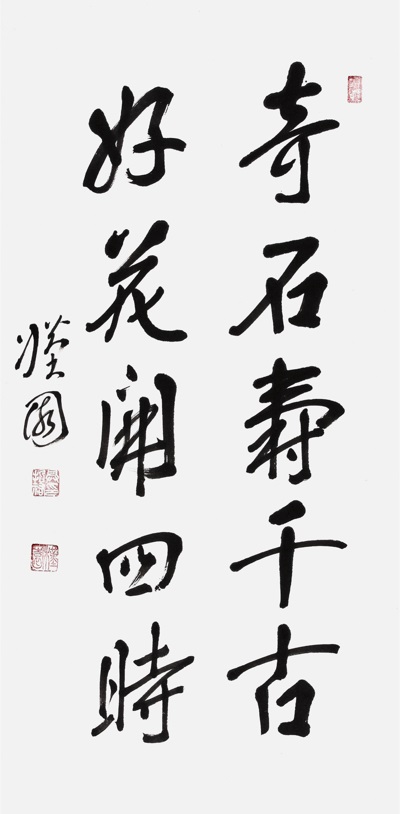 奇石壽千古
好花開四時